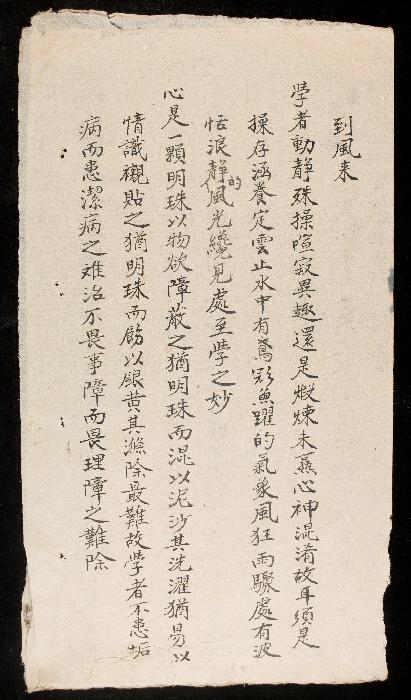 到風来
學者動靜殊操喧寂異趣還是煅煉未熟心神混淆故耳須是
操存涵養定雲止水中有鳶彩魚躍的氣象風狂雨驟處有波
恬浪靜的風光纔見處至學之妙
心是一顆明珠以物欲障蔽之猶明珠而混以泥沙其洗濯猶易以
情識襯貼之猶明珠而飭以銀黃其滌除最難故學者不患垢
病而患潔病之难治不畏事障而畏理障之難除